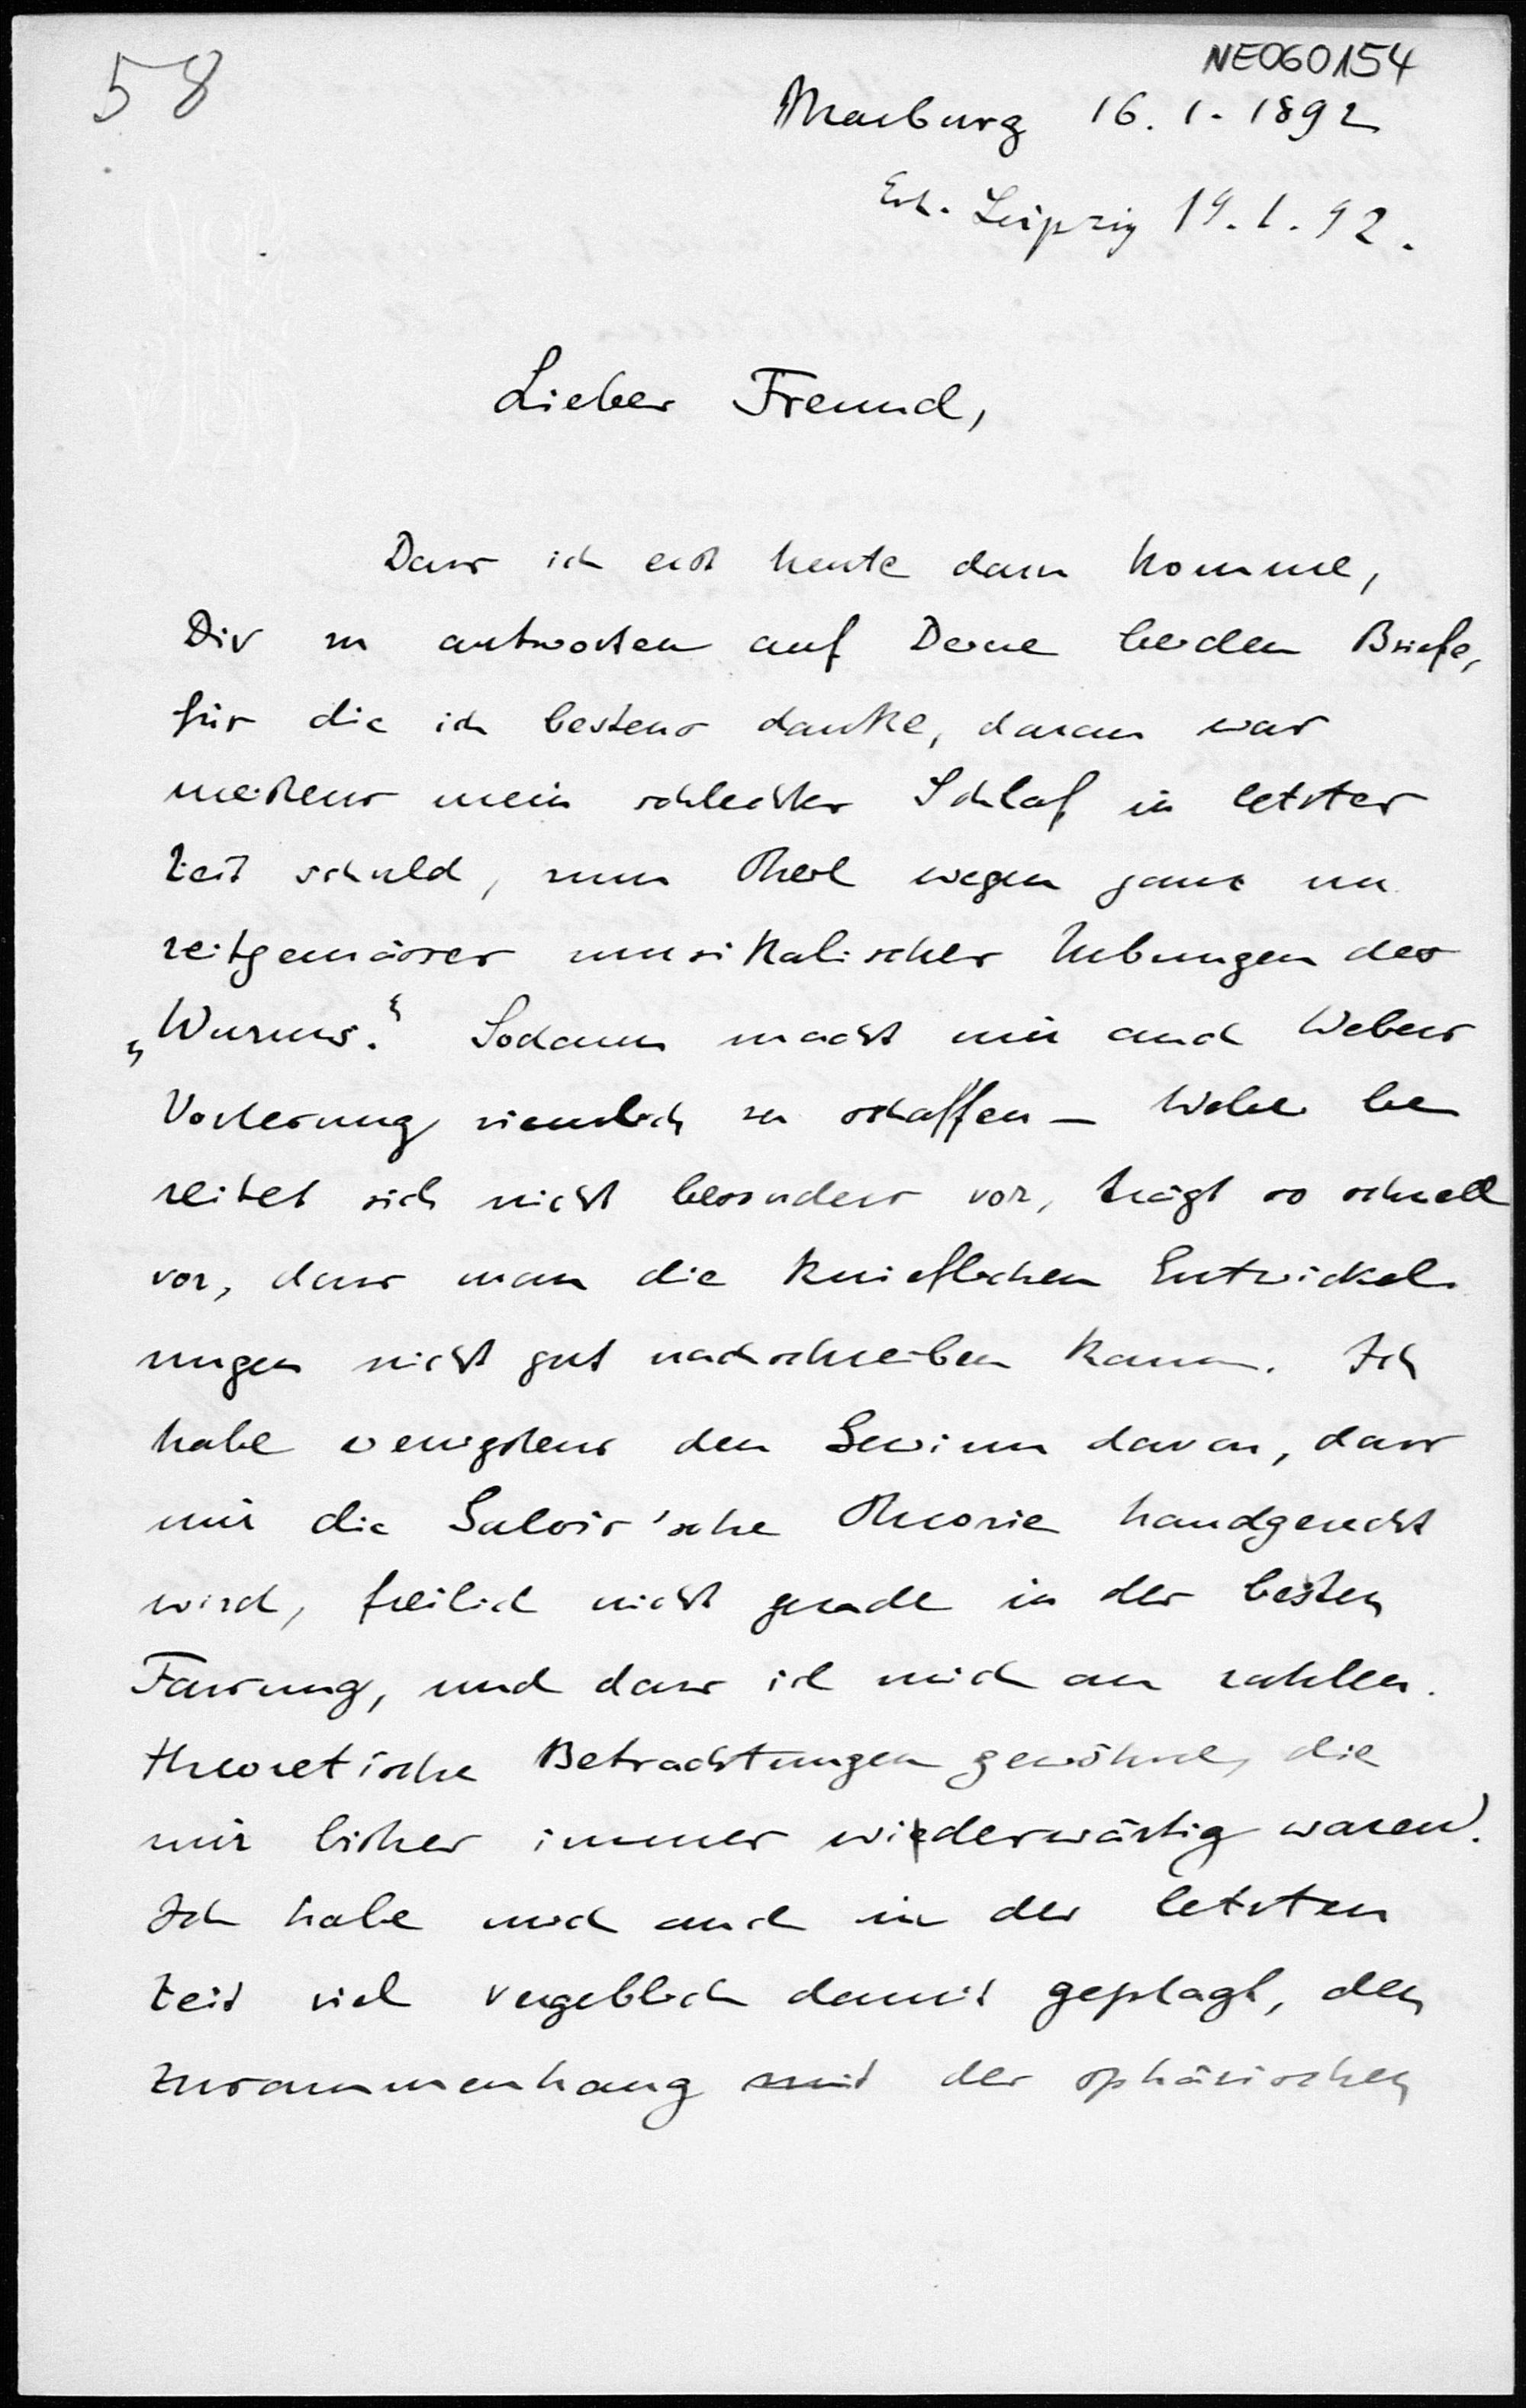 58
NE060154
Marburg 16. 1. 1892
Erh. Leipzig 19. 1. 92.
Lieber Freund,
Dass ich erst heute dazu komme,
Dir zu antworten auf Deine beiden Briefe,
für die ich bestens danke, daran war
meistens mein schlechter Schlaf in letzter
Zeit schuld, zum Theil wegen ganz un
zeitgemässer musikalischer Uebungen des
„Wurms.“ Sodann macht mir auch Webers
Vorlesung ziemlich zu schaffen – Weber be
reitet sich nicht besonders vor, trägt so schnell
vor, dass man die kniefflichen Entwickel
ungen nicht gut nachschreiben kann. Ich
habe wenigstens den Gewinn davon, dass
mir die Galois'sche Theorie handgerecht
wird, freilich nicht gerade in der besten
Fassung, und dass ich mich an zahlen
theoretische Betrachtungen gewöhne, die
mir bisher immer widerwärtig waren.
Ich habe mich auch in der letzten
Zeit viel vergeblich damit geplagt, den
Zusammenhang mit der sphärischen